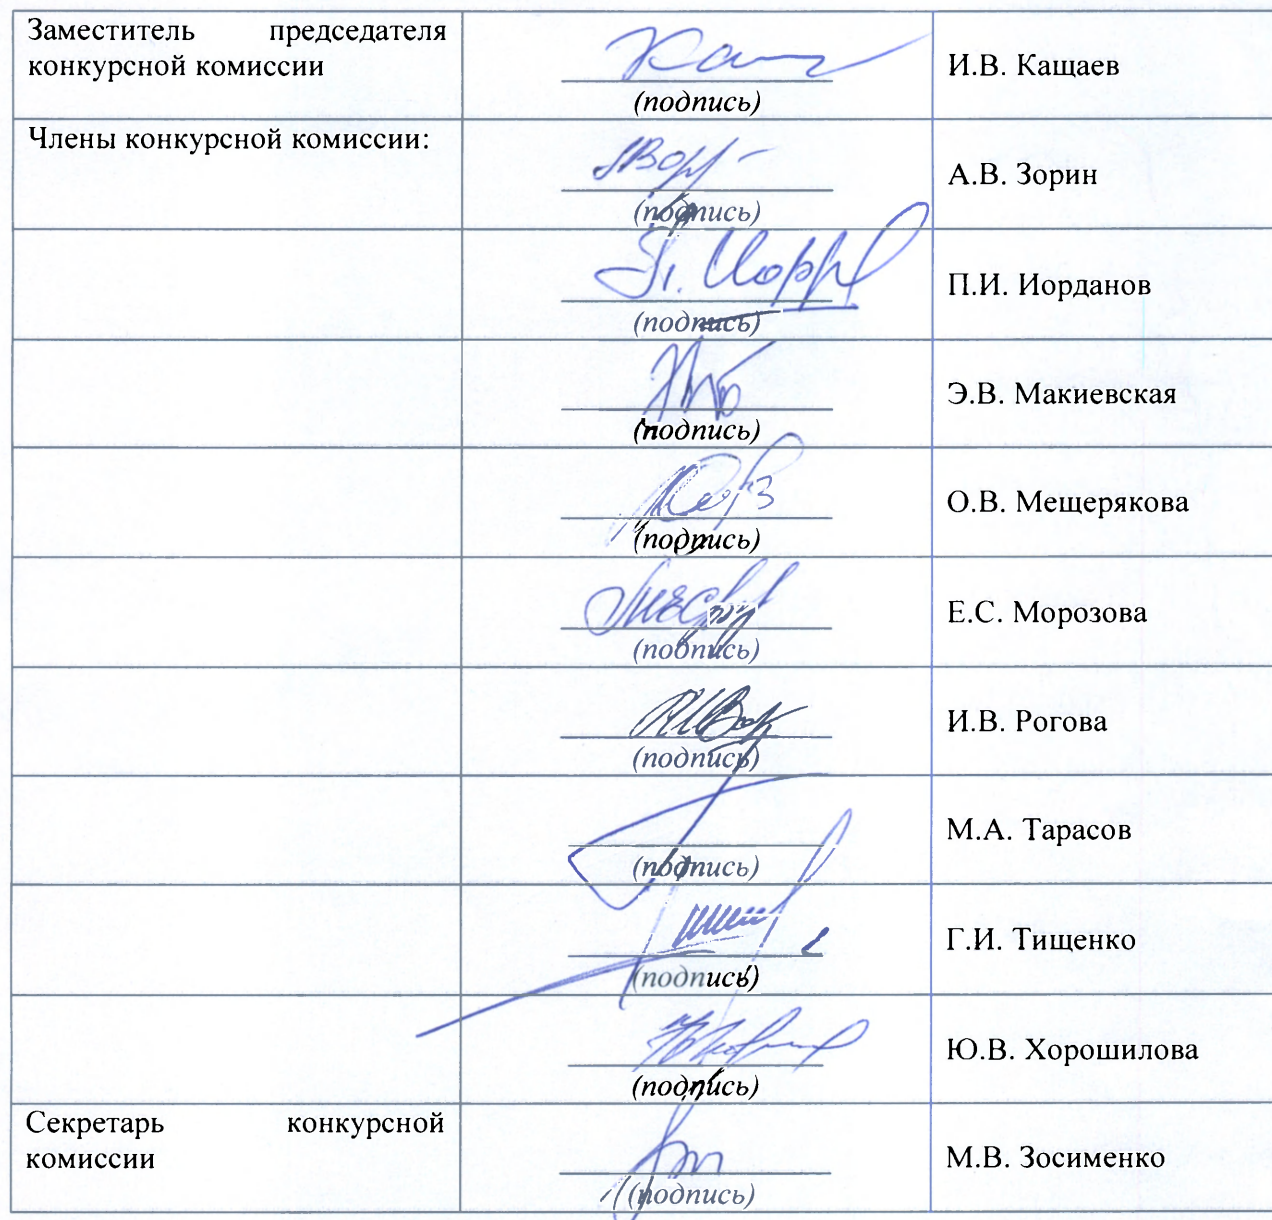 Заместитель председателя
конкурсной комиссии
(подпись)
И.В. Кащаев
Члены конкурсной комиссии:
(подпись)
А.В. Зорин
(подпись)
П.И. Иорданов
(подпись)
Э.В. Макиевская
(подпись)
О.В. Мещерякова
(подпись)
Е.С. Морозова
(подпись)
И.В. Рогова
(подпись)
М.А. Тарасов
(подпись)
Г.И. Тищенко
(подпись)
Ю.В. Хорошилова
Секретарь конкурсной
комиссии
(подпись)
М.В. Зосименко